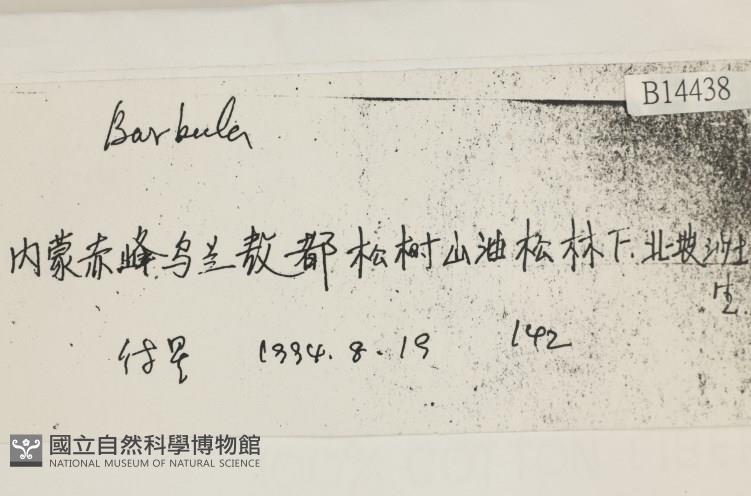 B14438
Barbula
内蒙赤峰乌兰敖都松树山油松林下.北坡沙土
生
付星 1994.8.19 142
國立自然科學博物館
NATIONAL MUSEUM OF NATURAL SCIENCE